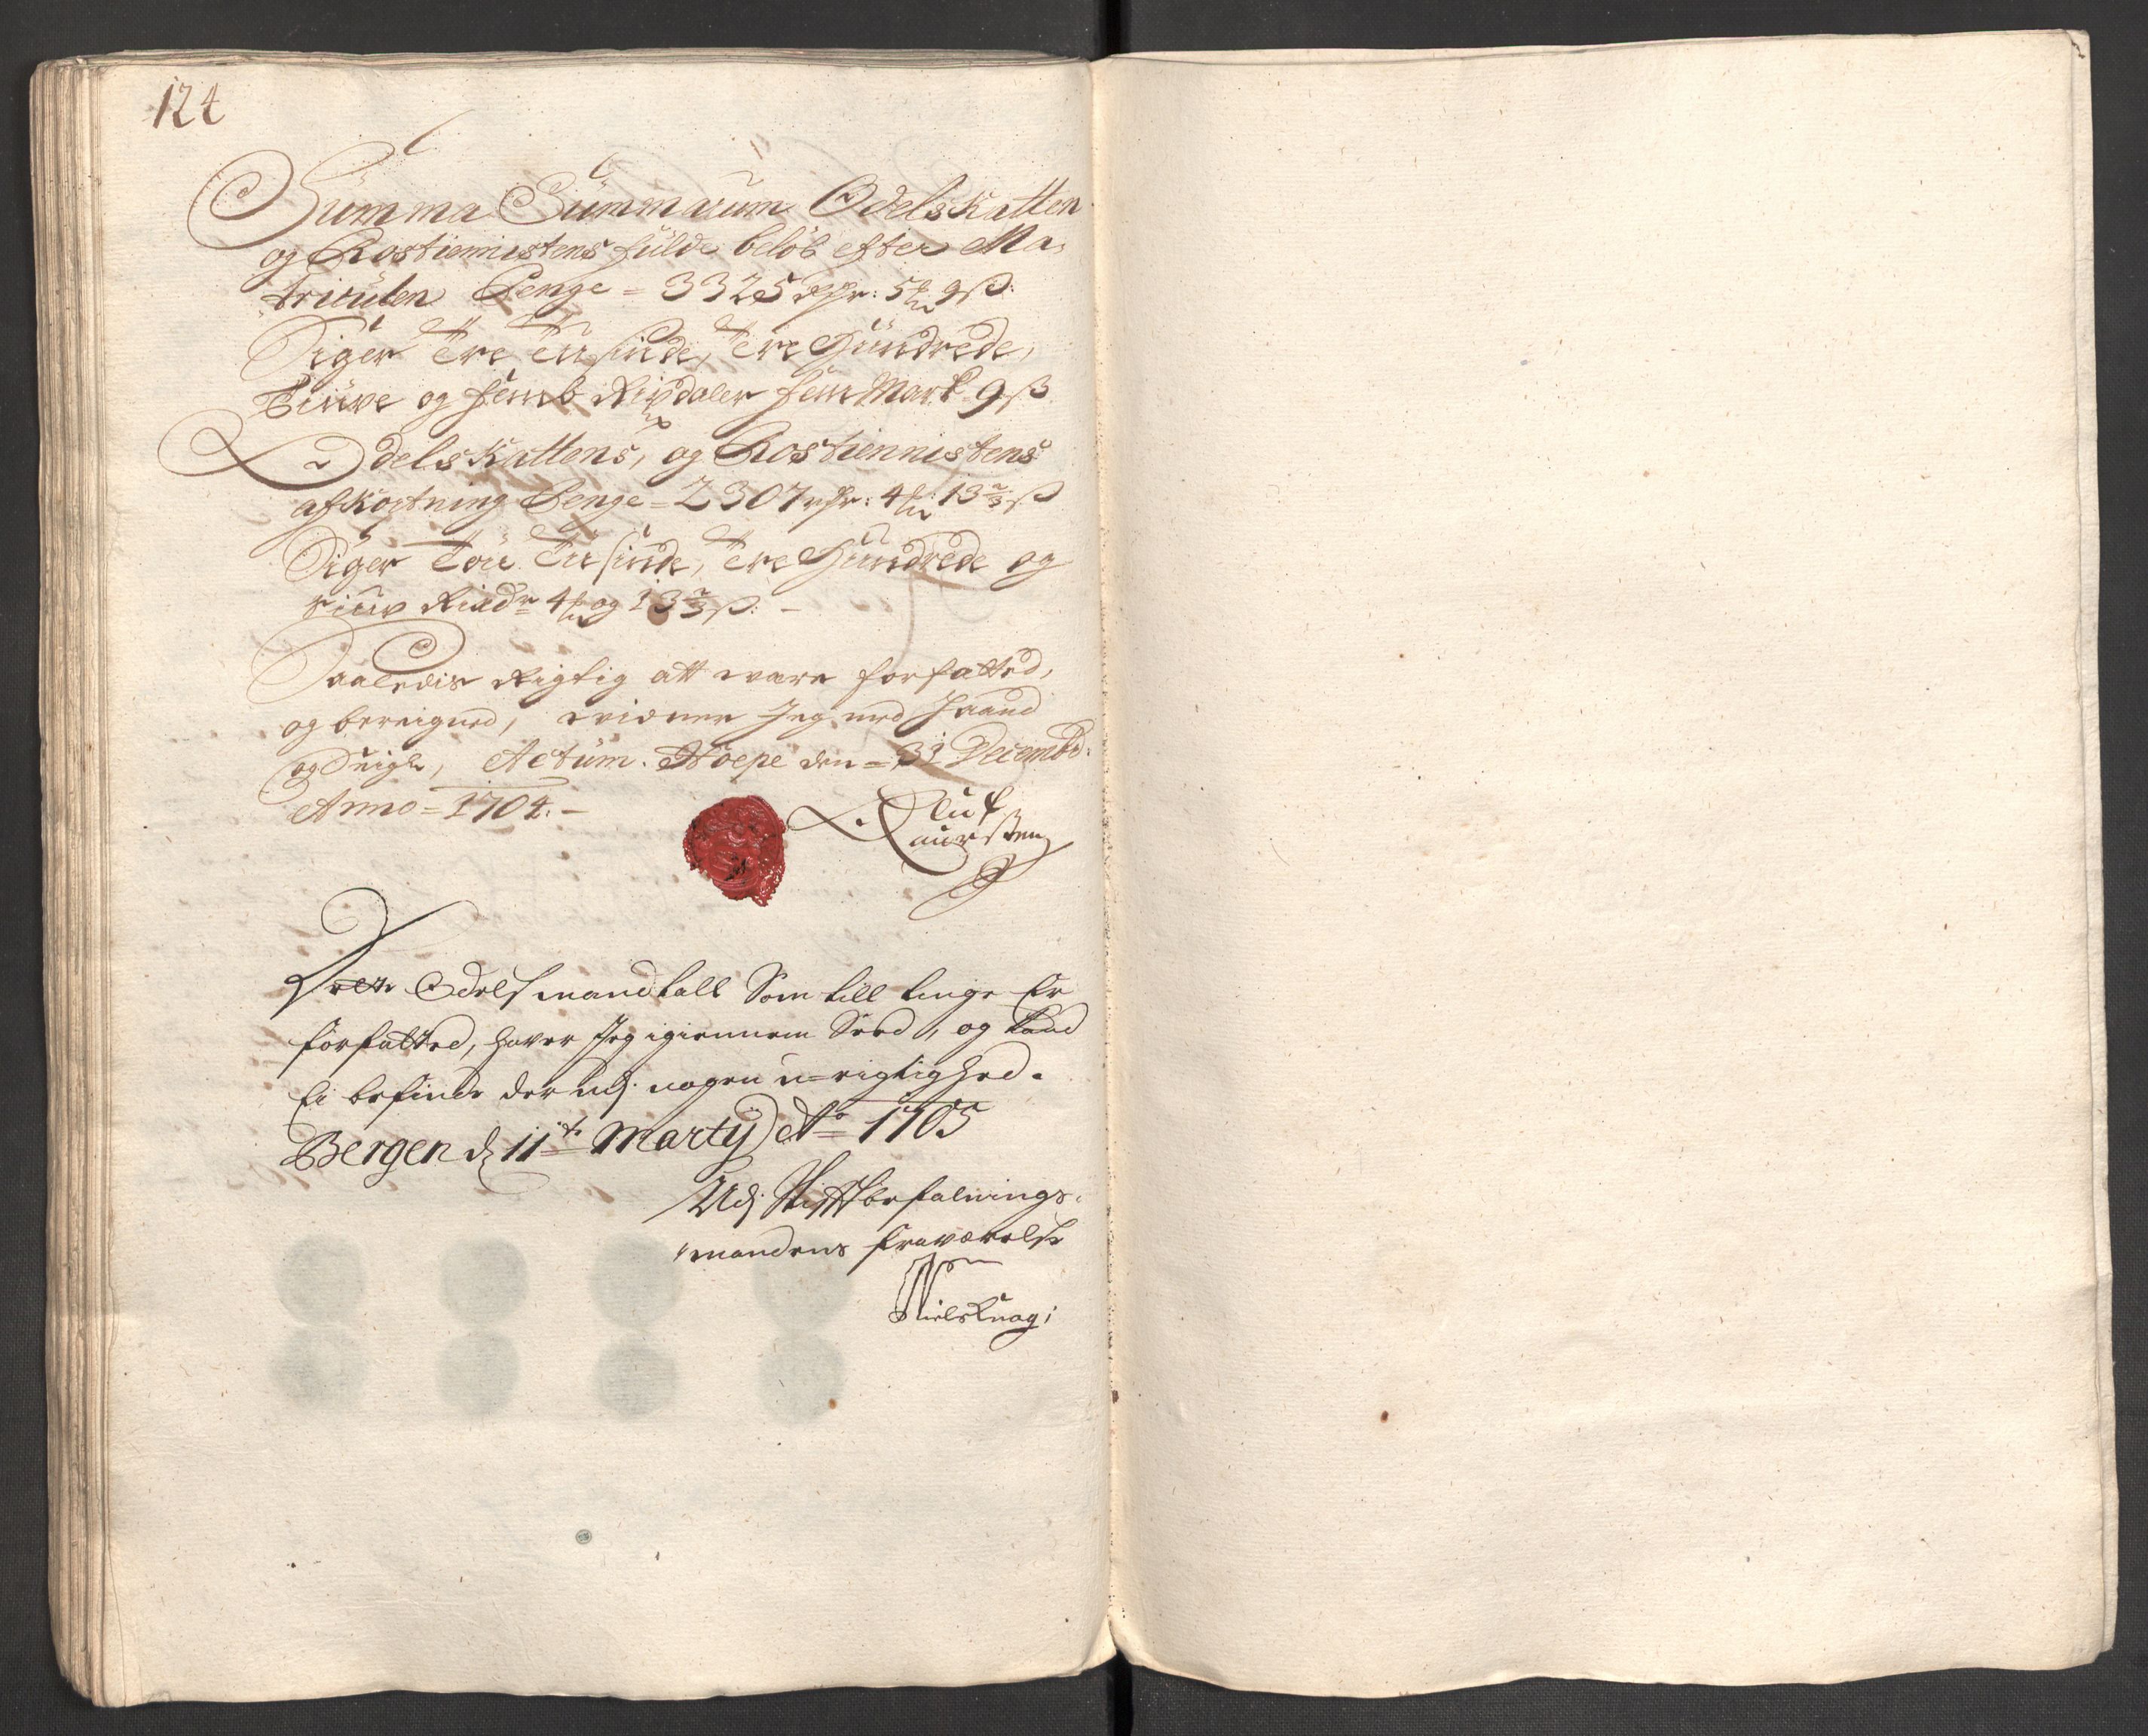 124
Summa Summarum Odelskatten
og Rostiennistens fulde beløb efter Ma-
triculen Penge = 3325 rdr: 5 ℔ 9 ß:
Siger Tre Tusinde, Tre Hundrede,
Tiuve og femb Rixdaler fem Mark 9 ß
Odelskattens, og Rostiennistens
afkortning Penge = 2307 rdr: 4 ℔: 13 2/3 ß
Siger Tou Tusinde, Tre Hundrede og
siuv Rixdr 4 ℔ og 13 2/3 ß: -
Saaledis Rigtig att være forfatted,
og bereigned, vidner Jeg med Haand
og Actum. Hoepe den = 31 Decembr:
Anno = 1704. -
Oluf
Laurssen
Dette Odelsmandtall Som till tinge Er
forfatted, haver Jeg igiennem Seed, og kand
Ei befinde der udj nogen u-rigtighed.
Bergen d 11t Martij Ao 1705
Udj Stiftbefalnings-
mandens fraværelse
Niels Knag;